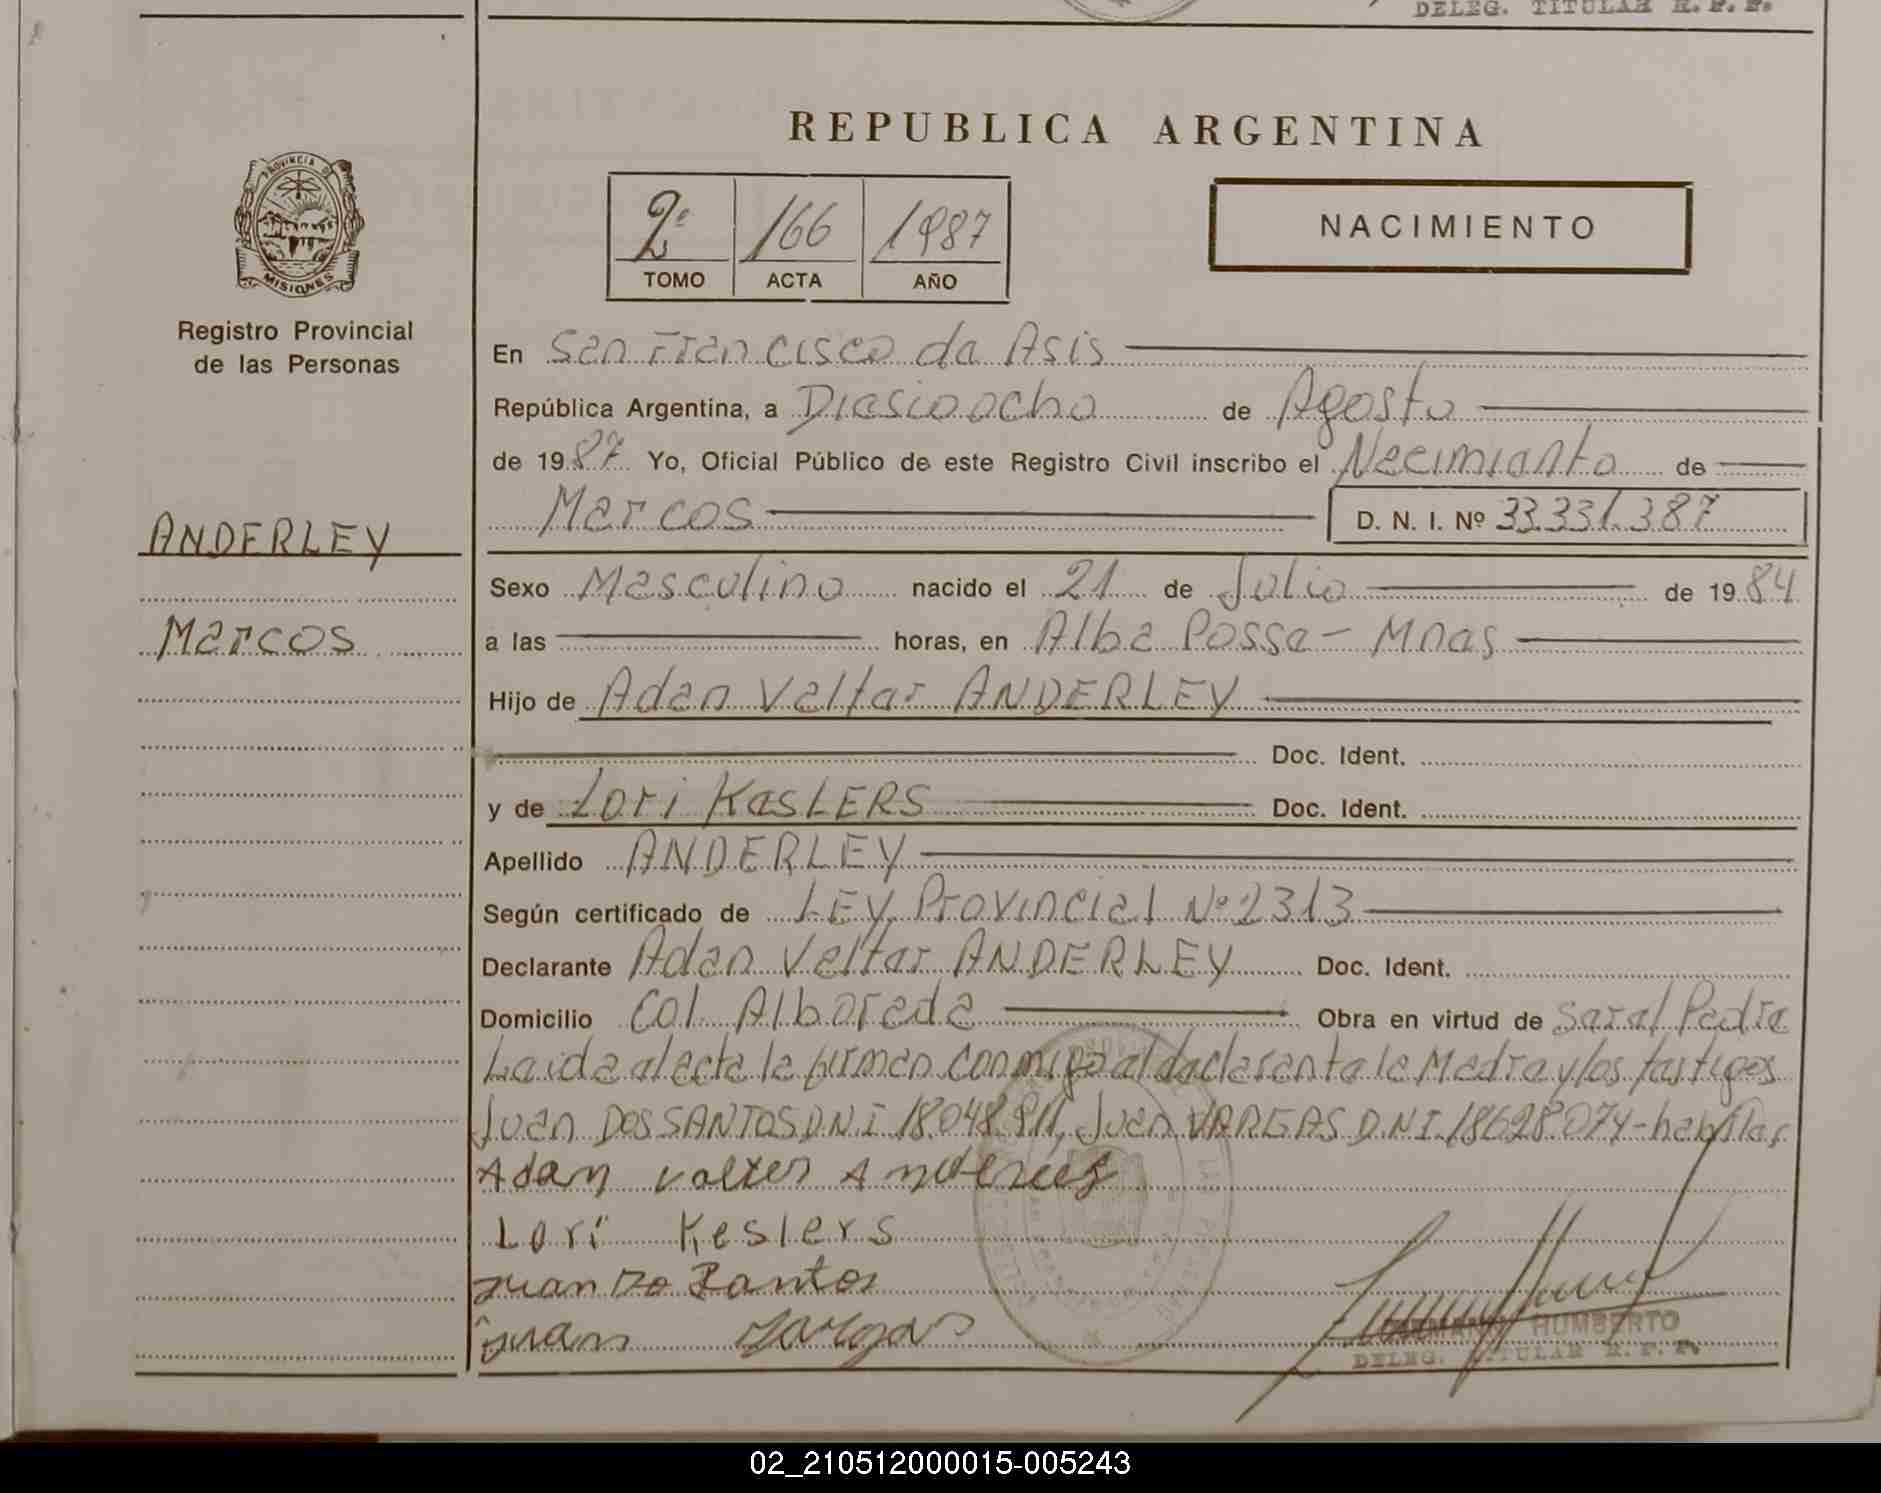 DELEG. TITULAR R. P. P.
REPUBLICA ARGENTINA
PROVINCIA DE
MISIONES
Registro Provincial
de las Personas
2º 166 1987
TOMO ACTA AÑO
NACIMIENTO
En San Francisco de Asis
República Argentina, a Diesiocho de Agosto
de 1987 Yo, Oficial Público de este Registro Civil inscribo el Necimiento de
Marcos D. N. I. Nº 33.331.387
ANDERLEY
Marcos
Sexo Masculino nacido el 21 de Julio de 1984
a las horas, en Alba Posse - Mnes
Hijo de Adan Valter ANDERLEY
Doc. Ident.
y de Lori KesLERS Doc. Ident.
Apellido ANDERLEY
Según certificado de LEY Provincial Nº 2313
Declarante Adan Valter ANDERLEY Doc. Ident.
Domicilio Col. Alborada Obra en virtud de Ser el Padre
Leida el acta la firman conmigo el declarante la Madre y los testigos
Juan DOS SANTOS D.N.I 18.048.911, Juan VARGAS D.N.I. 18.628.074 - habiles
Adan Valter Anderley
Lori Keslers
Juan Do Santos
Juan Vargas
HUMBERTO
DELEG. TITULAR R. P. P.
02_210512000015-005243